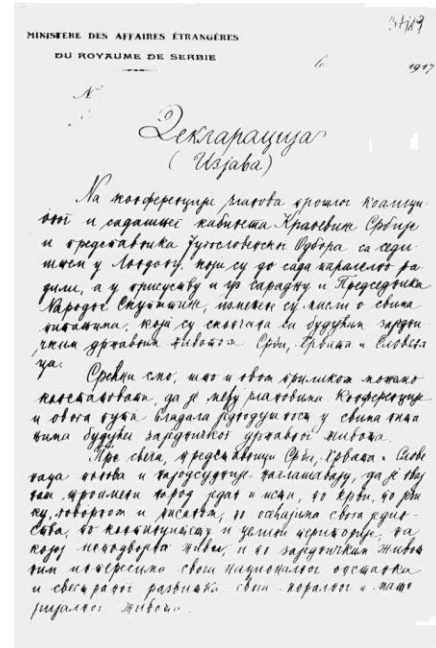 MINISTÈRE DES AFFAIRES ÉTRANGÈRES
DU ROYAUME DE SERBIE
1917
N°
Декларација
(Изјава)
На конференцији чланова прошлог коалици-
оног и садашњег кабинета Краљевине Србије
и представника Југословенског Одбора са седи-
штем у Лондону, који су до сада паралелно ра-
дили, а у присуству и уз сарадњу и Председника
Народне Скупштине, измењене су мисли о свима
питањима, која су скопчана са будућим зајед-
ничким државним животом Срба, Хрвата и Словена-
ца.
Срећни смо, што и овом приликом можемо
констатовати, да је међу члановима Конференције
и овога пута владала једнодушност у свима пита-
њима будућег заједничког државног живота.
Пре свега, представници Срба, Хрвата и Слове-
наца понова и најодсудније наглашавају, да је овај
наш троимени народ један и исти, по крви, по јези-
ку, говорном и писаном, по осећајима свога једин-
ства, по континуитету и целини територије, на
којој неподвојено живи, и по заједничким живот-
ним интересима свога националног опстанка
и свестраног развитка свога моралног и мате-
ријалног живота.